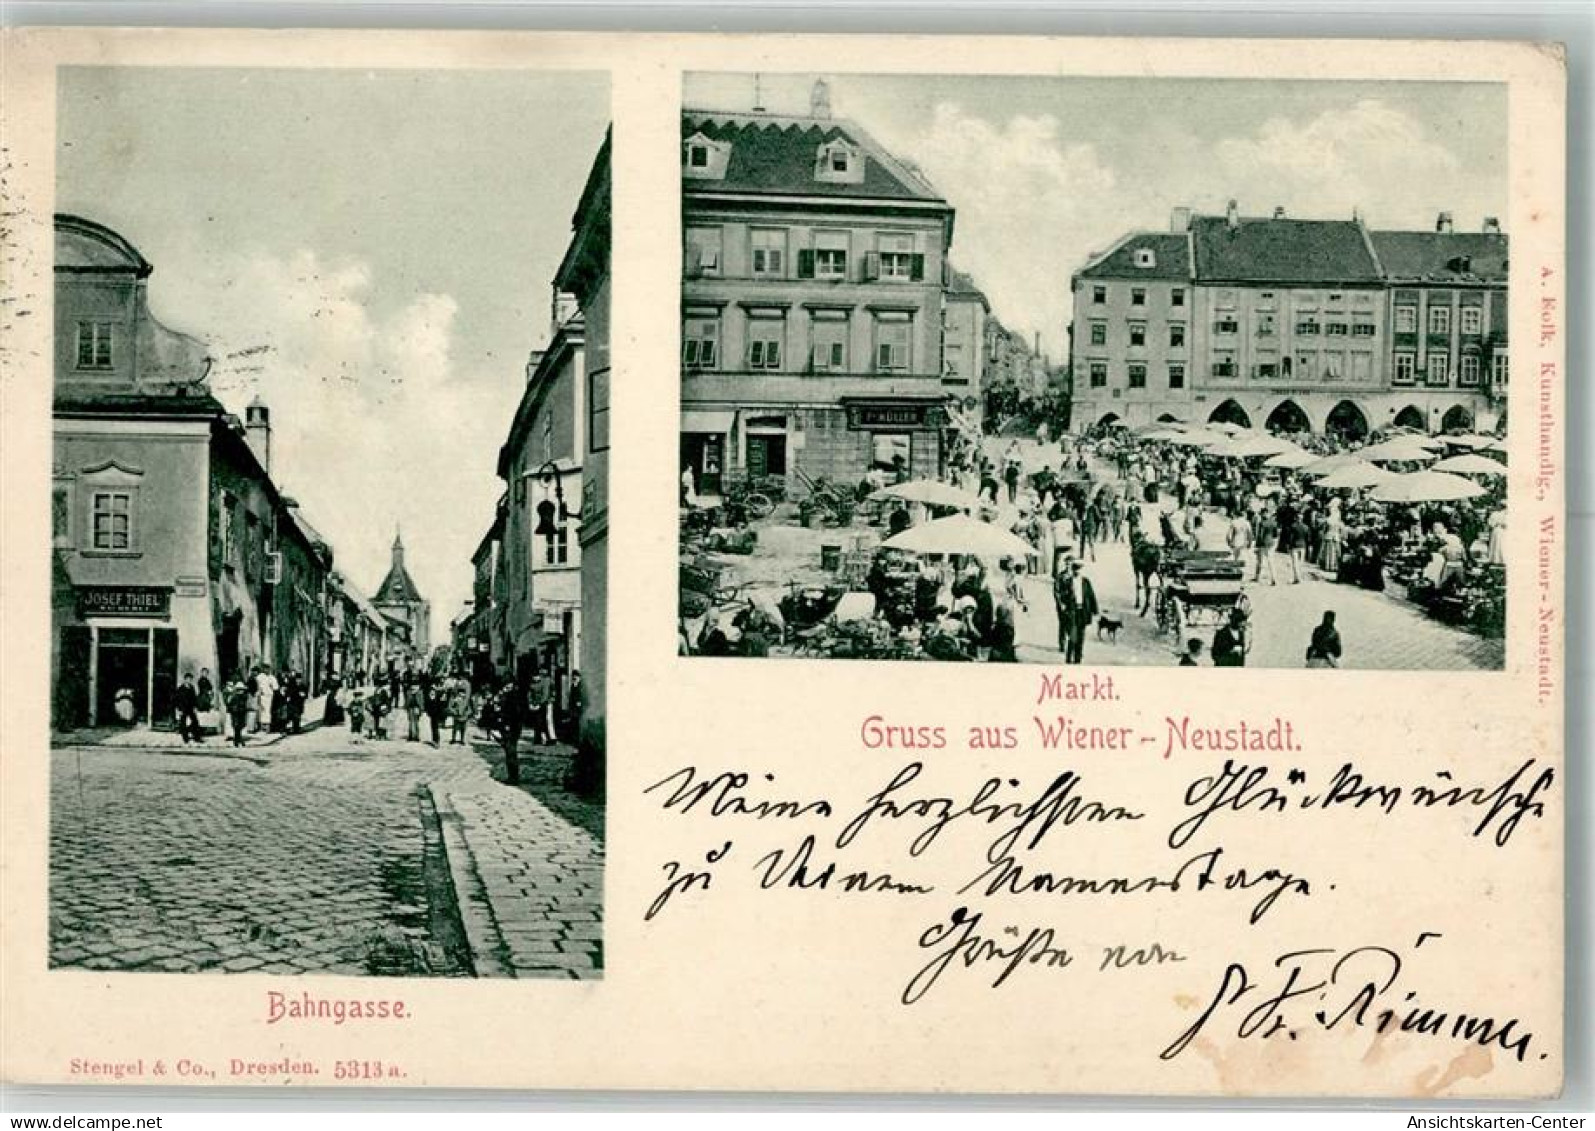 JOSEF THIEL
MÜLLER
Markt.
Gruss aus Wiener-Neustadt.
Meine herzlichsten Glückwünsche
zu Deinem Namenstage.
Grüße von
Fr.
Bahngasse.
Stengel & Co., Dresden. 5313 a.
A. Folk, Kunsthandlg., Wiener-Neustadt.
Ansichtskarten-Center